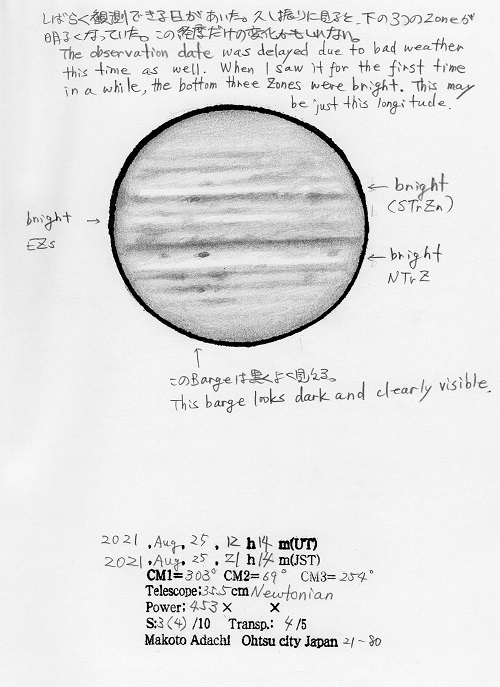 しばらく観測できる日があいた。久し振りに見ると、下の3つのZoneが
明るくなっていた。この経度だけの変化かもしれない。
The observation date was delayed due to bad weather
this time as well. When I saw it for the first time
in a while, the bottom three Zones were bright. This may
be just this longitude.
← bright
(STrZn)
bright →
EZs
← bright
NTrZ
↑
このBargeは黒くよく見える。
This barge looks dark and clearly visible.
2021 . Aug. 25 , 12 h 14 m(UT)
2021 . Aug. 25 , 21 h 14 m(JST)
CM1= 303° CM2= 69° CM3= 254°
Telescope: 35.5 cm Newtonian
Power: 453 × ×
S: 3(4) /10 Transp.: 4 /5
Makoto Adachi Ohtsu city Japan 21-80